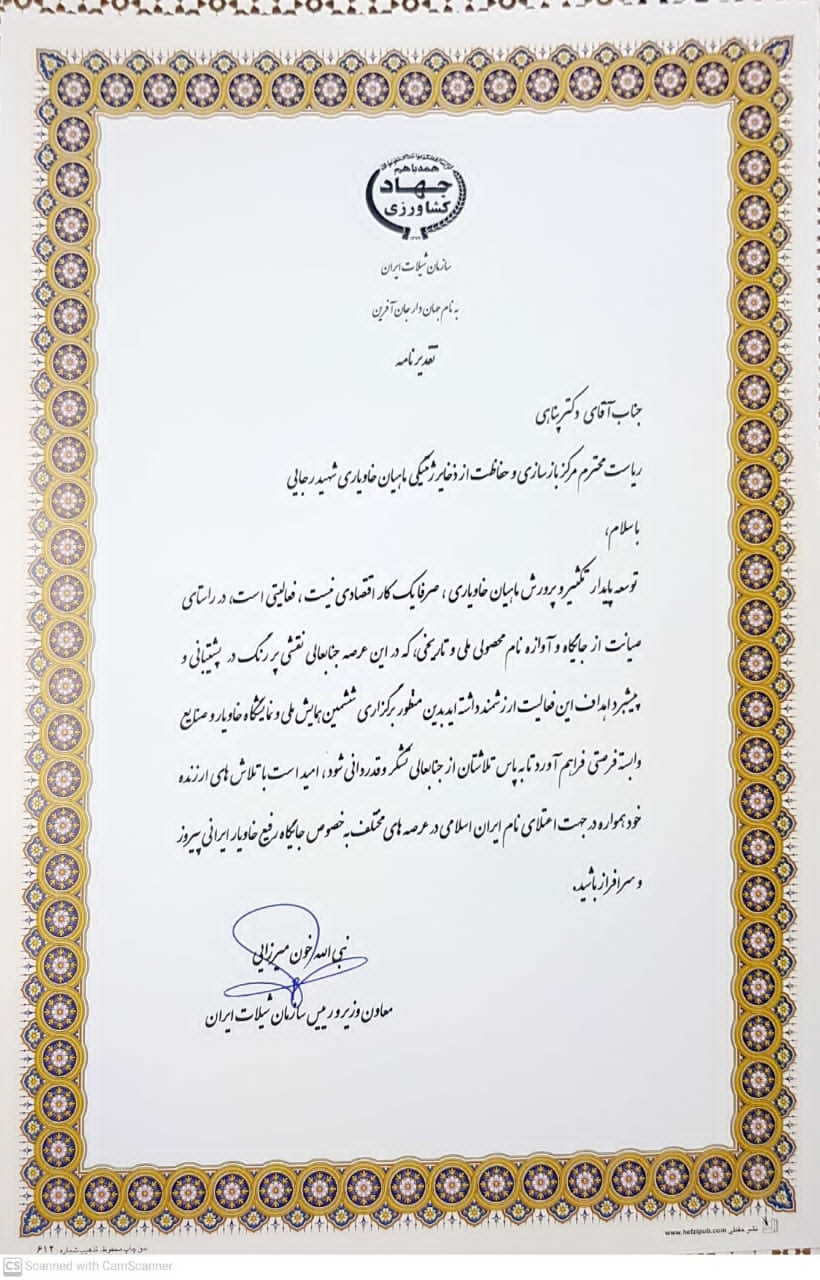 همه با هم
جهاد
کشاورزی
سازمان شیلات ایران
به نام جهان دار جان آفرین
تقدیرنامه
جناب آقای دکتر پناهی
ریاست محترم مرکز بازسازی و حفاظت از ذخایر ژنتیکی ماهیان خاویاری شهید رجایی
با سلام،
توسعه پایدار تکثیر و پرورش ماهیان خاویاری، صرفا یک کار اقتصادی نیست، فعالیتی است، در راستای
صیانت از جایگاه و آوازه نام محصولی ملی و تاریخی، که در این عرصه جنابعالی نقشی پر رنگ در پشتیبانی و
پیشبرد اهداف این فعالیت ارزشمند داشته اید بدین منظور برگزاری ششمین همایش ملی و نمایشگاه خاویار و صنایع
وابسته فرصتی فراهم آورد تا به پاس تلاشتان از جنابعالی تشکر و قدردانی شود، امید است با تلاش های ارزنده
خود همواره در جهت اعتلای نام ایران اسلامی در عرصه های مختلف به خصوص جایگاه رفیع خاویار ایرانی پیروز
و سرافراز باشید.
نبی الله خون میرزایی
معاون وزیر و رییس سازمان شیلات ایران
نشر حفظی www.hefzipub.com
حق چاپ محفوظ، تذهیب شماره: ۶۱۲
CS Scanned with CamScanner